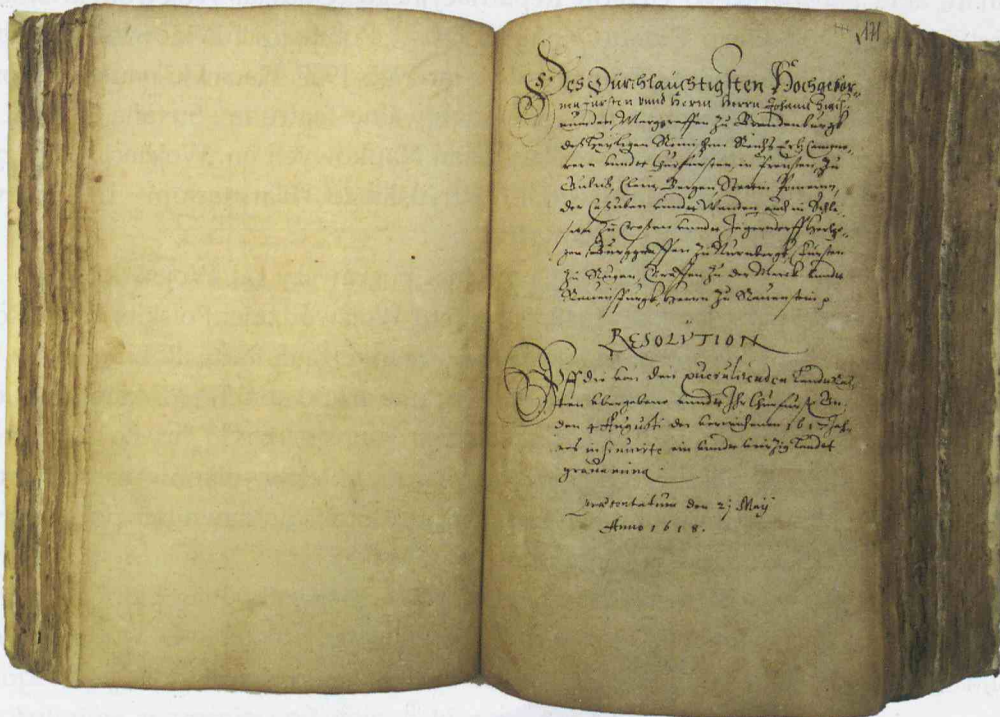 171
Des Durchlauchtigsten Hochgebor-
nen Fürsten vnnd Herrn Herrn Johann Sigis-
munden, Marggraffen zu Brandenburgk
deß Heyligen Römischen Reichs Ertz Camme-
rern vnndt Churfürsten, in Preußen, zu
Gulich, Cleve, Bergen, Stettin, Pomern,
der Caßuben vnndt Wenden, auch in Schle-
sien zu Croßen vnndt Jegerndorff Hertzo-
gen, Burggraffen zu Nurnbergk, Fürsten
zu Rugen, Graffen zu der Marck vnndt
Rauenspurgk, Herrn zu Rauenstein
RESOLUTION
Vff die von den querulirenden
vbergebene vnndt Ihr Churfürstl.
den 4 Augusti des 1617 Jah-
res ein vnndt viertzig Landes
gravamina.
præsentatum den 2j Maij
Anno 1618.